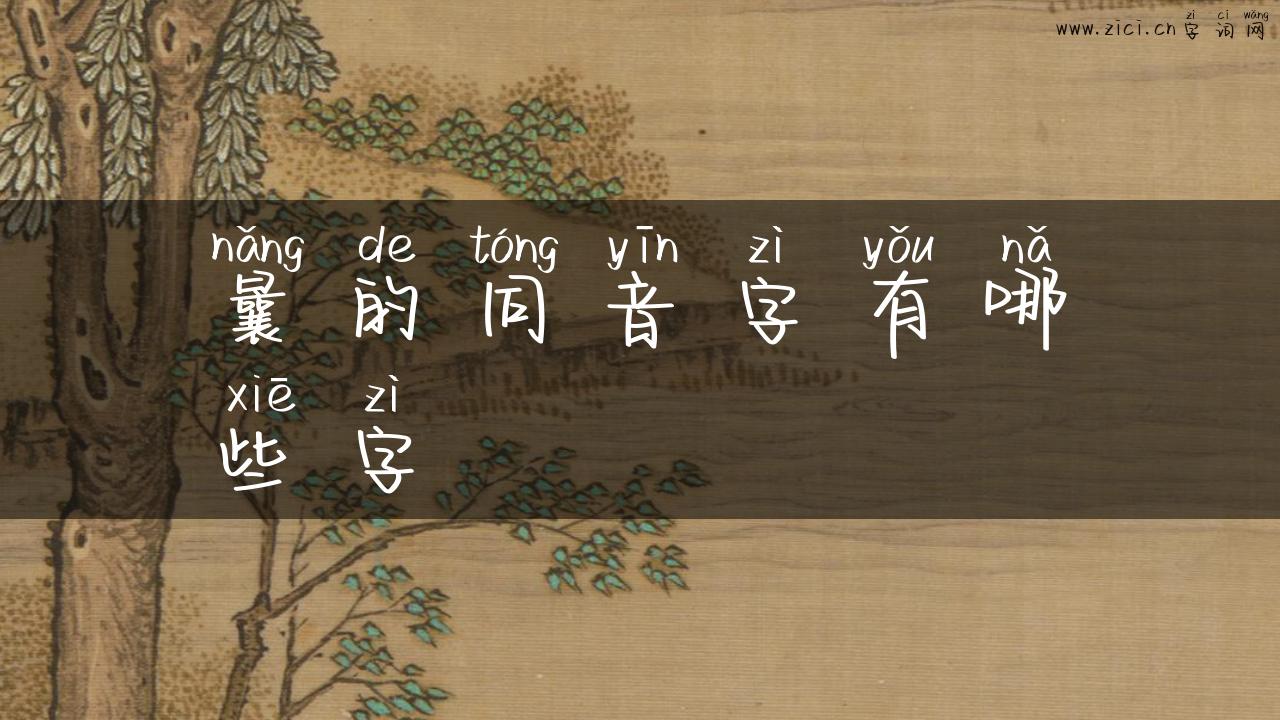 zì cí wǎng
www.zici.cn 字词网
nǎng de tóng yīn zì yǒu nǎ
曩的同音字有哪
xiē zì
些字